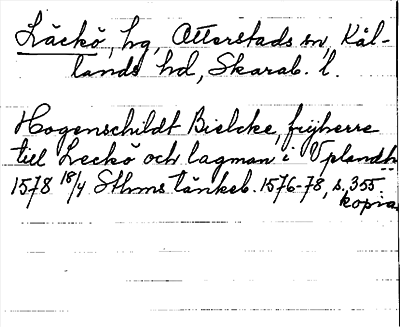 Läckö, hg, Otterstads sn, Kål-
lands hd, Skarab. l.
Hogenschildt Bielcke, frijherre
till Leckö och lagman i Vplandh
1578 18/4 Sthms tänkeb. 1576-78, s. 355.
kopia